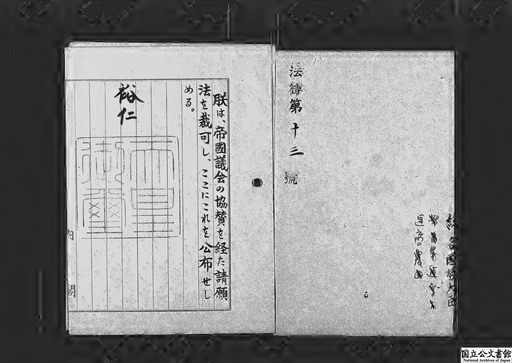 法律第十三號
朕は、帝國議会の協賛を経た請願
法を裁可し、ここにこれを公布せし
める。
裕仁
内閣
国立公文書館
National Archives of Japan